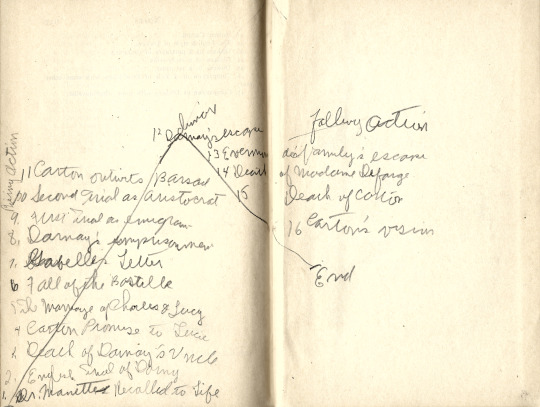 Climax
12 Darnay's escape
13 Evremonde family's escape
14 Death of Madame Defarge
15 Death of Carton
16 Carton's vision
End
falling action
Rising Action
11 Carton outwits Barsad
10 Second Trial as Aristocrat
9. First Trial as emigram
8. Darnay's emprisonmen
7. Gabelle's Letter
6 Fall of the Bastille
5 The Marriage of Charles & Lucy
4 Carton Promise to Lucie
3. Death of Darnay's Uncle
2. English Trial of Darny
1. Dr. Manette Recalled to Life